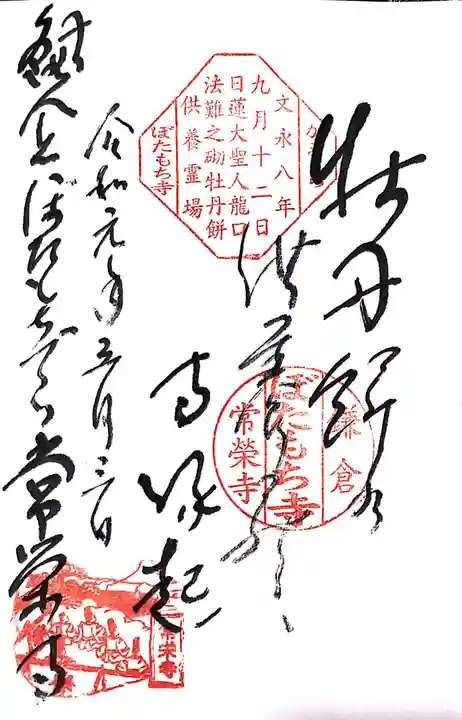 牡丹餅
供養
寺縁起
令和元年五月三日
鎌倉ぼたもち寺常栄寺
文永八年
九月十二日
日蓮大聖人龍口
法難之砌牡丹餅
供養霊場
ぼたもち寺
鎌倉
ぼたもち寺
常榮寺
常栄寺